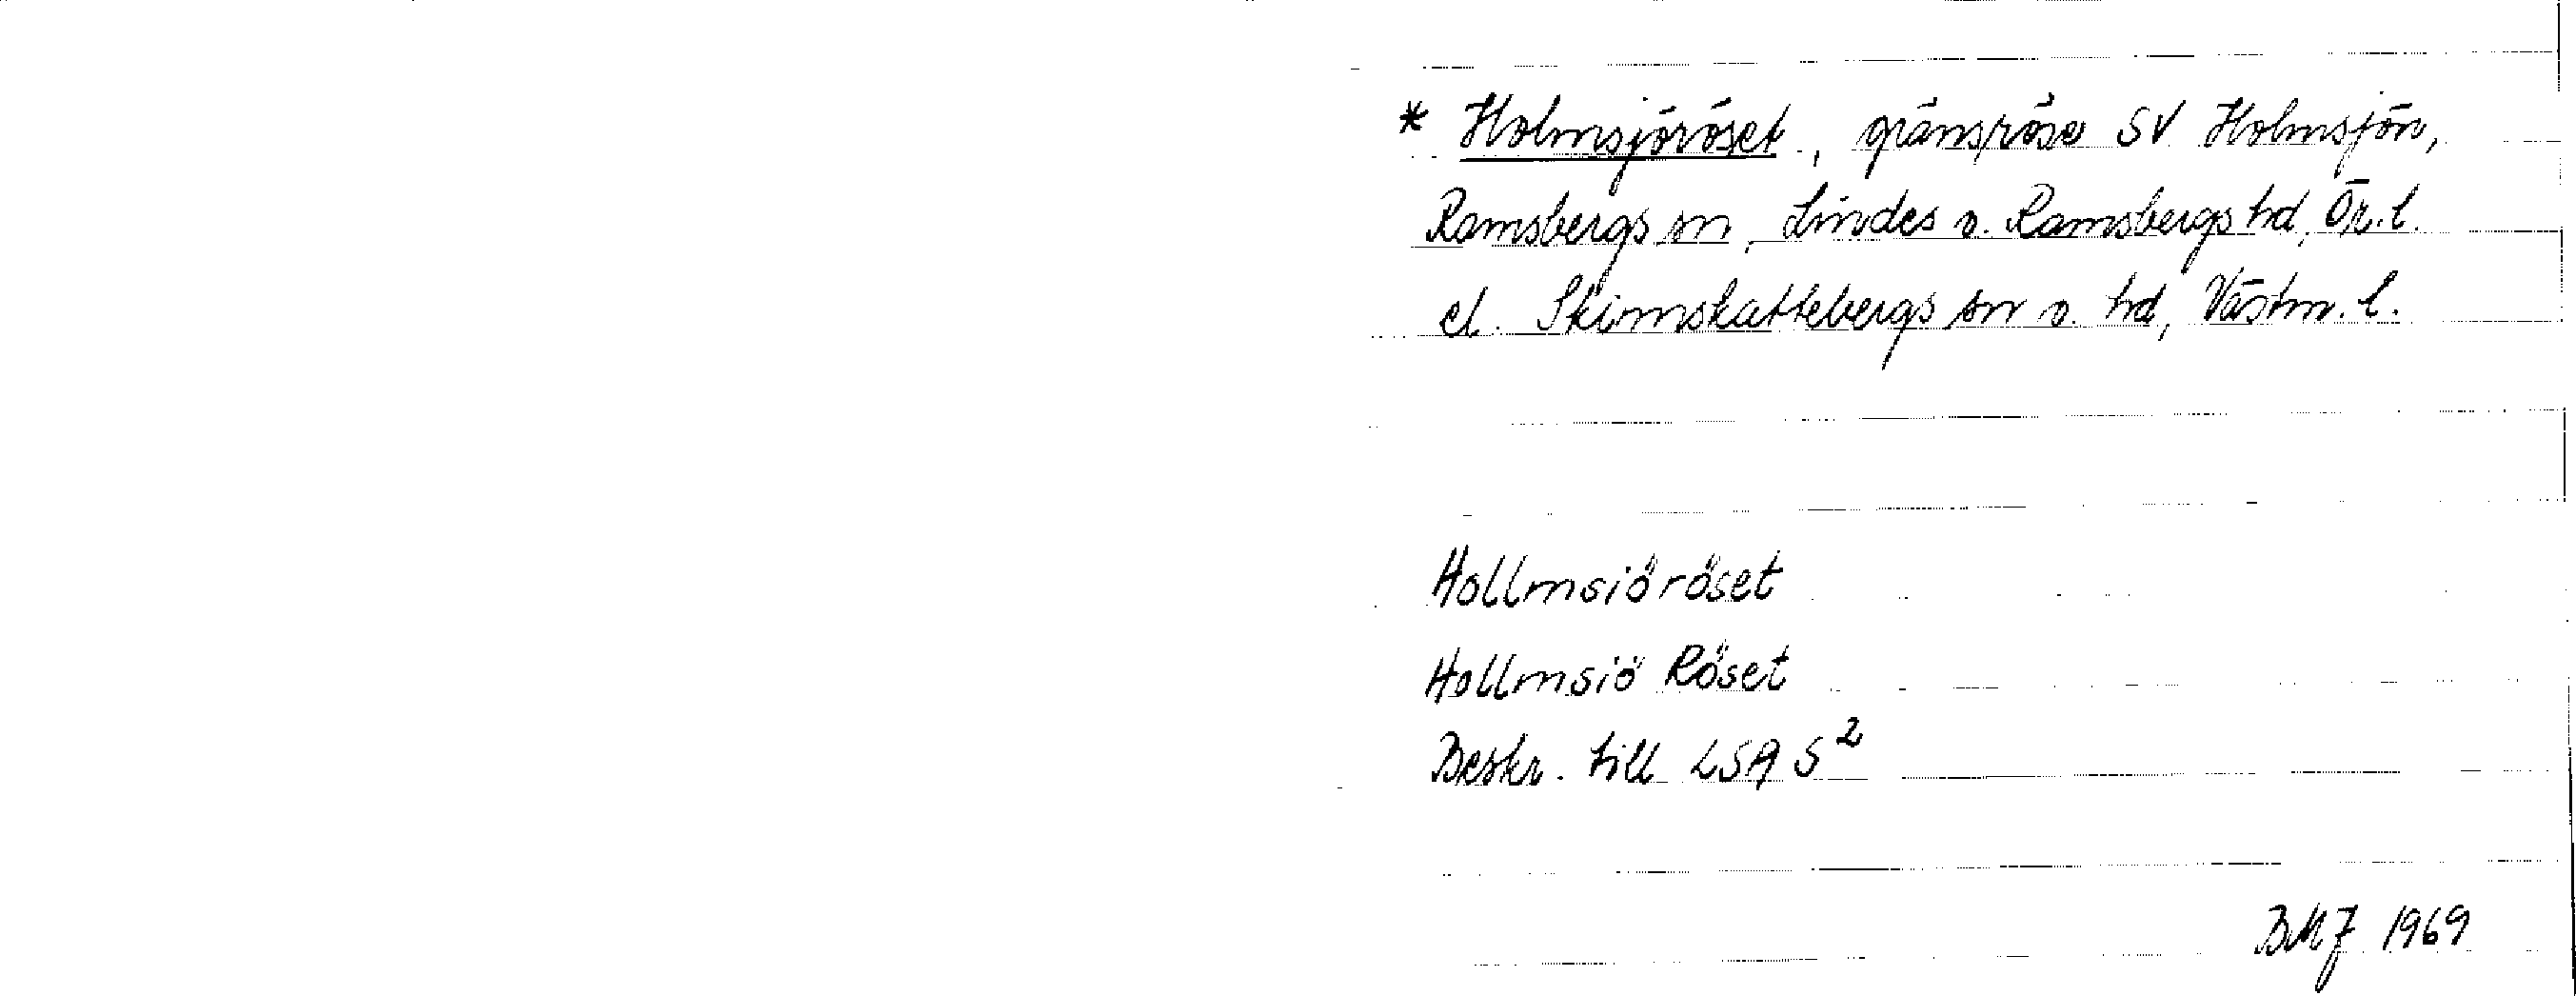 * Holmsjöröset, gränsröse SV Holmsjön,
Ramsbergs sn, Lindes o. Ramsbergs hd, Ör. l.
el. Skinnskattebergs sn o. hd, Västm. l.
Hollmsiöröset
Hollmsiö Röset
Beskr. till LSA S²
BMJ 1969